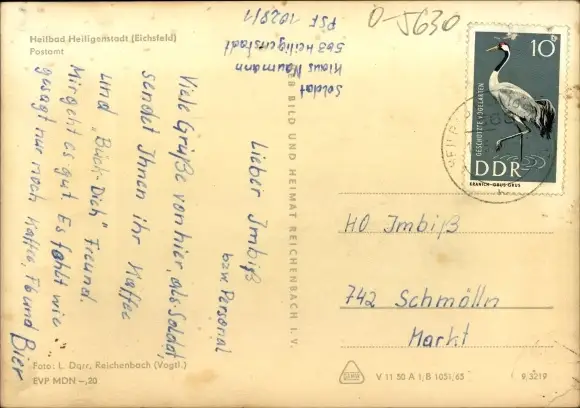 Heilbad Heiligenstadt (Eichsfeld)
Postamt
Soldat
Klaus Naumann
563 Heiligenstadt
PSF 1028/1
O-5630
Lieber Imbiß
bzw. Personal
Viele Grüße von hier, als Soldat,
sendet Ihnen ihr Kaffee
und "Bück-Dich" Freund.
Mir geht es gut. Es fehlt wie
gesagt nur noch Kaffee, F6 und Bier
BILD UND HEIMAT REICHENBACH I. V.
10
GESCHÜTZTE VOGELARTEN
DDR
KRANICH-GRUS GRUS
HO Imbiß
742 Schmölln
Markt
Foto: L. Darr, Reichenbach (Vogtl.)
EVP MDN -,20
V 11 50 A 1/B 1051/65
9/3219